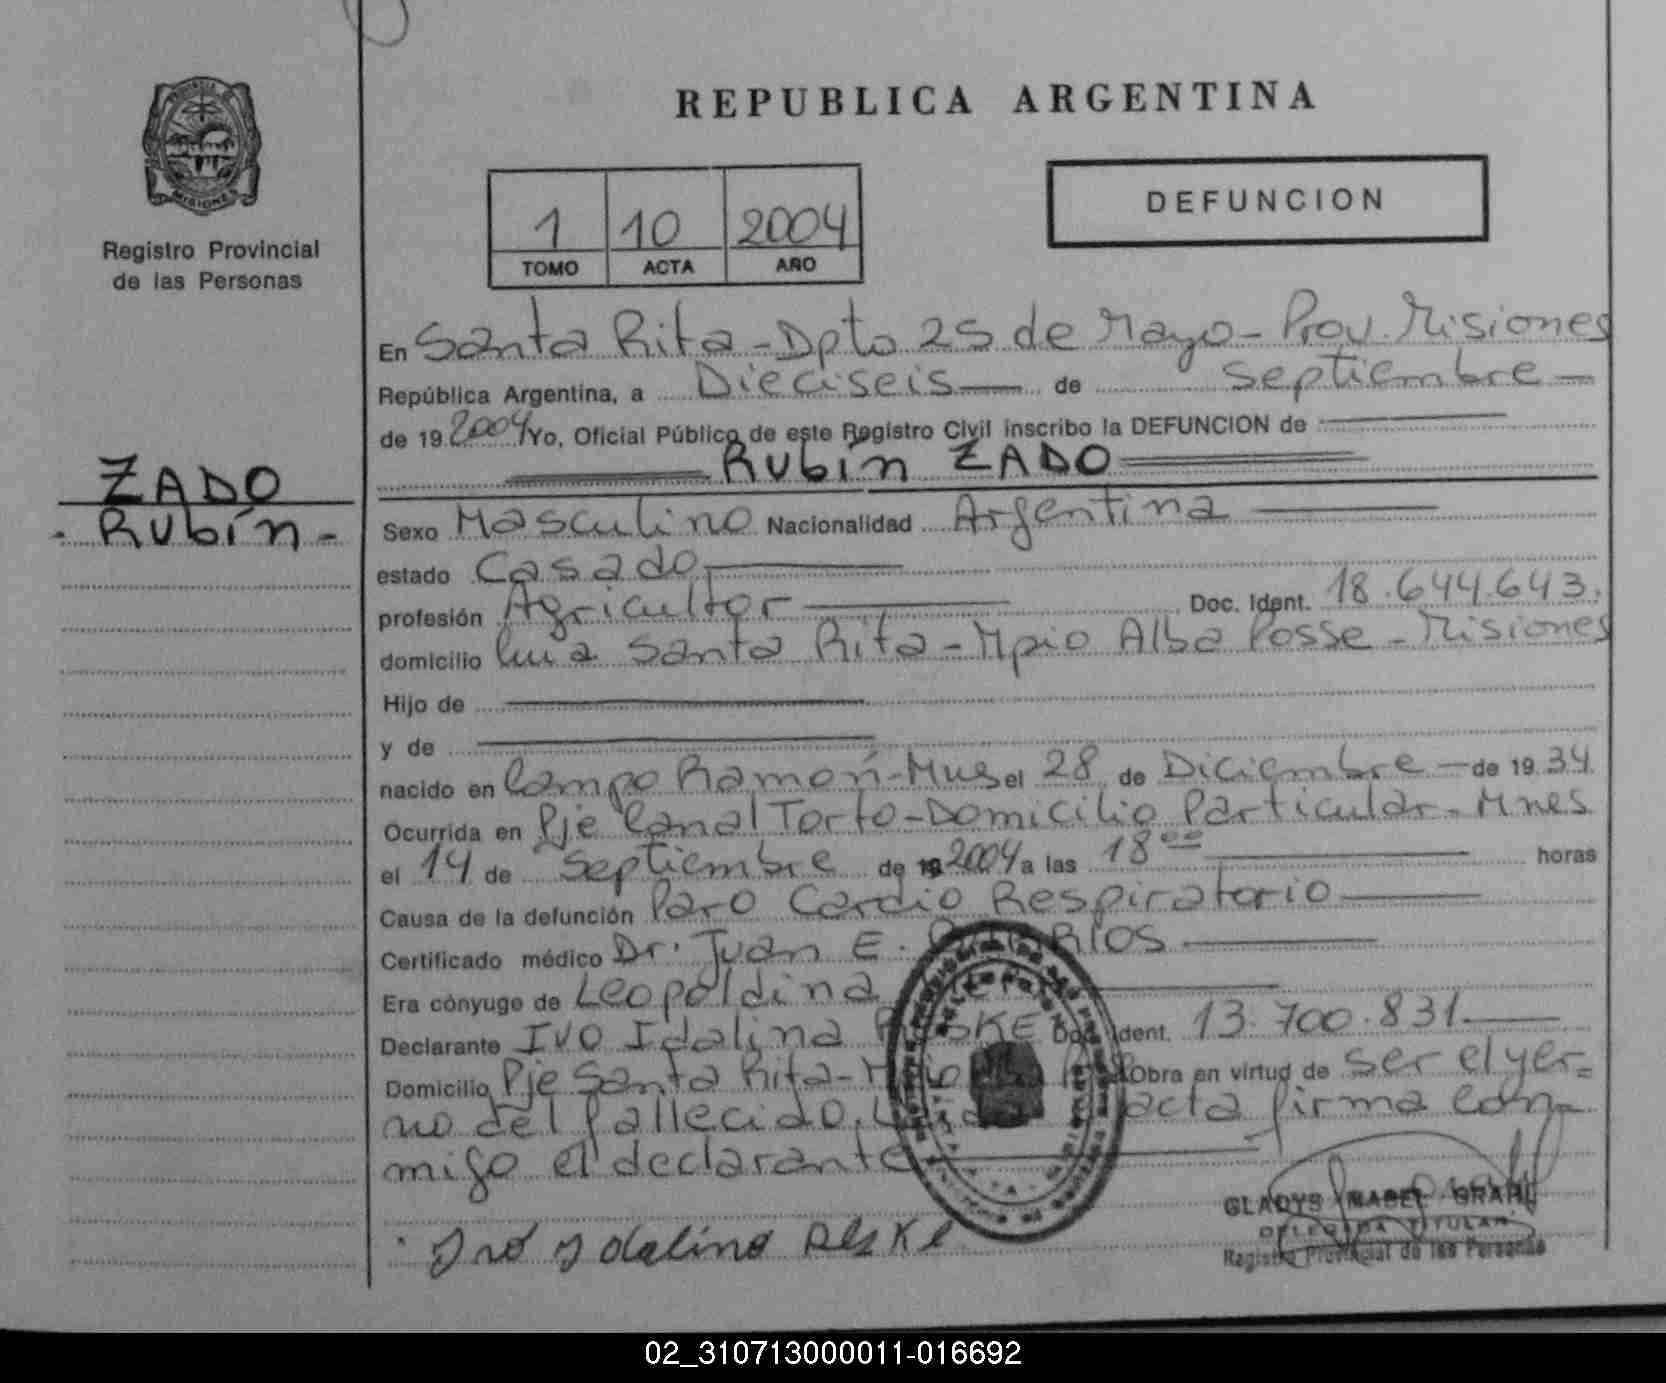 REPUBLICA ARGENTINA
MISIONES
Registro Provincial
de las Personas
1 10 2004
TOMO ACTA AÑO
DEFUNCION
ZADO
- Rubín -
En Santa Rita - Dpto 25 de Mayo - Prov. Misiones
República Argentina, a Dieciseis de Septiembre
de 19 2004 Yo, Oficial Público de este Registro Civil inscribo la DEFUNCION de
Rubín ZADO
Sexo Masculino Nacionalidad Argentina
estado Casado
profesión Agricultor Doc. Ident. 18.644.643.
domicilio Santa Rita - Mpio Alba Posse - Misiones
Hijo de
y de
nacido en Campo Ramón - el 28 de Diciembre - de 19 34
Ocurrida en Pje Canal Torto - Domicilio Particular - Mnes
el 14 de Septiembre de 19 2004 a las 18 00 horas
Causa de la defunción Paro Cardio Respiratorio
Certificado médico Dr. Juan E.
Era cónyuge de Leopoldina
Declarante IVO Idalina Doc. Ident. 13.700.831
Domicilio Pje Santa Rita - Obra en virtud de ser el yer=
no del fallecido. acta firma con-
migo el declarante
Ivo Idalino
GLADYS MABEL GRAHL
DELEGADA TITULAR
Registro Provincial de las Personas
02_310713000011-016692